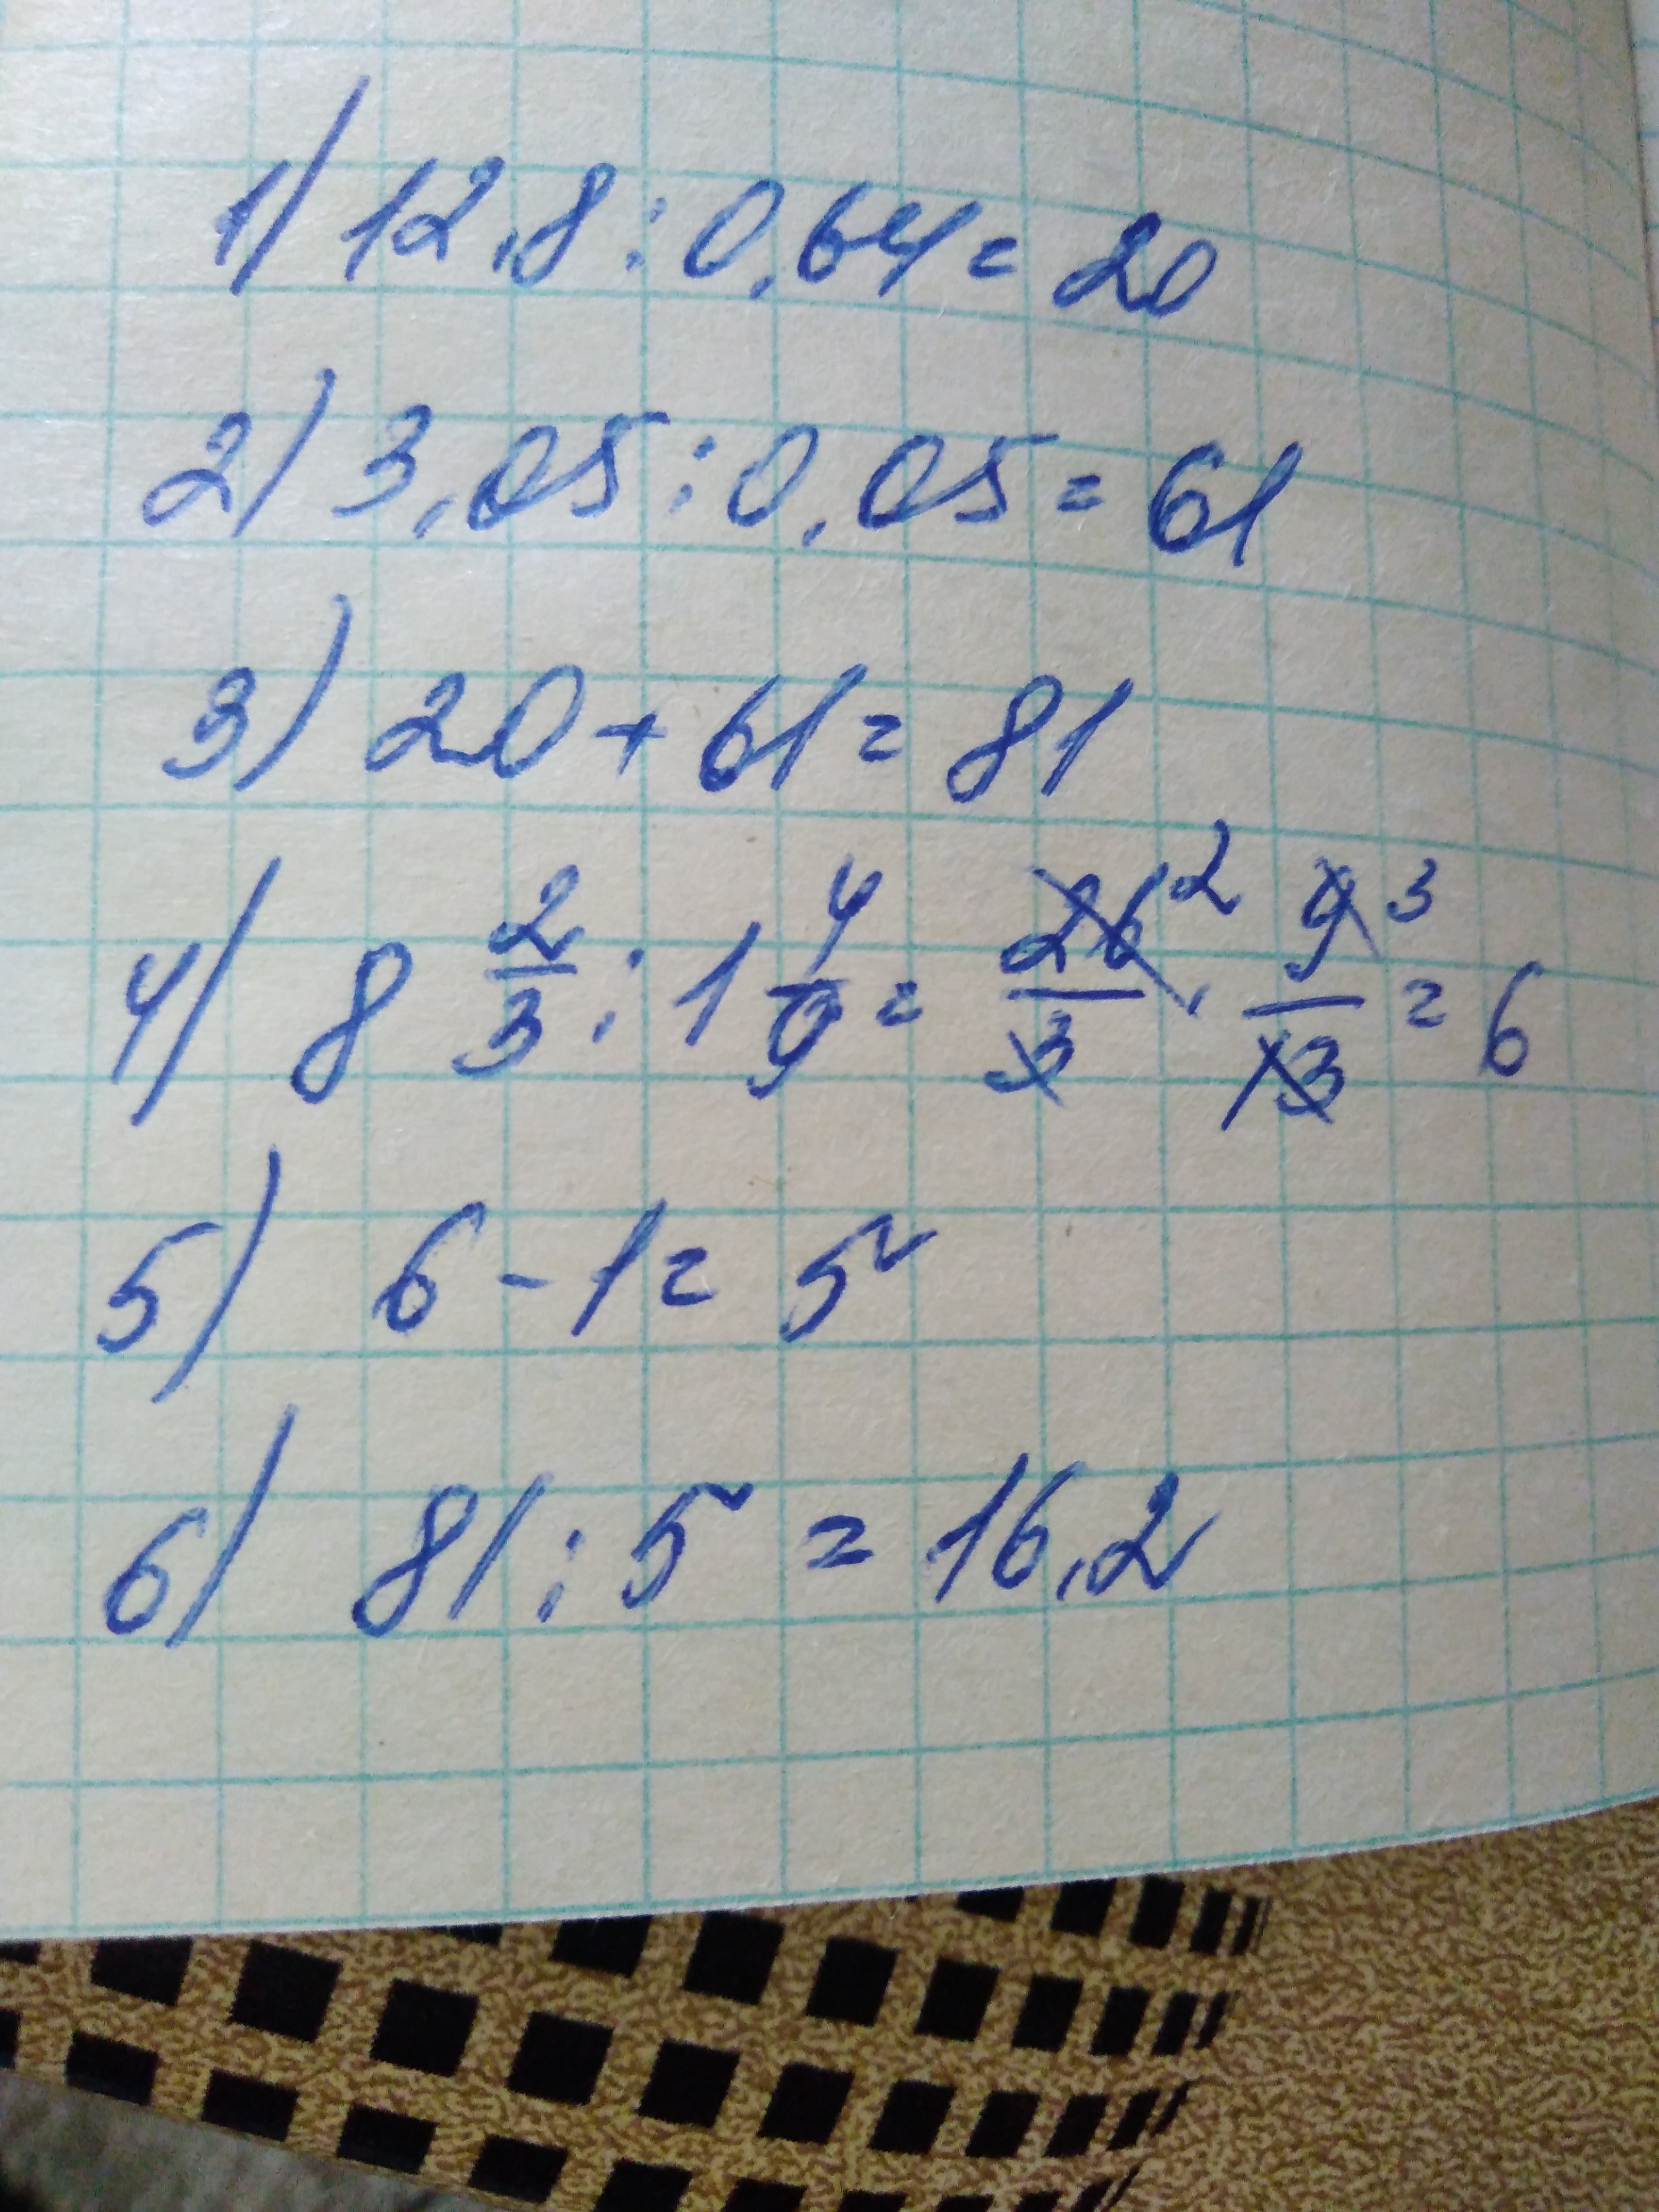 1) 12,8 : 0,64 = 20
2) 3,05 : 0,05 = 61
3) 20 + 61 = 81
4) 8 2/3 : 1 4/9 = 26/3 2 · 9/13 3 = 6
5) 6 - 1 = 5
6) 81 : 5 = 16,2